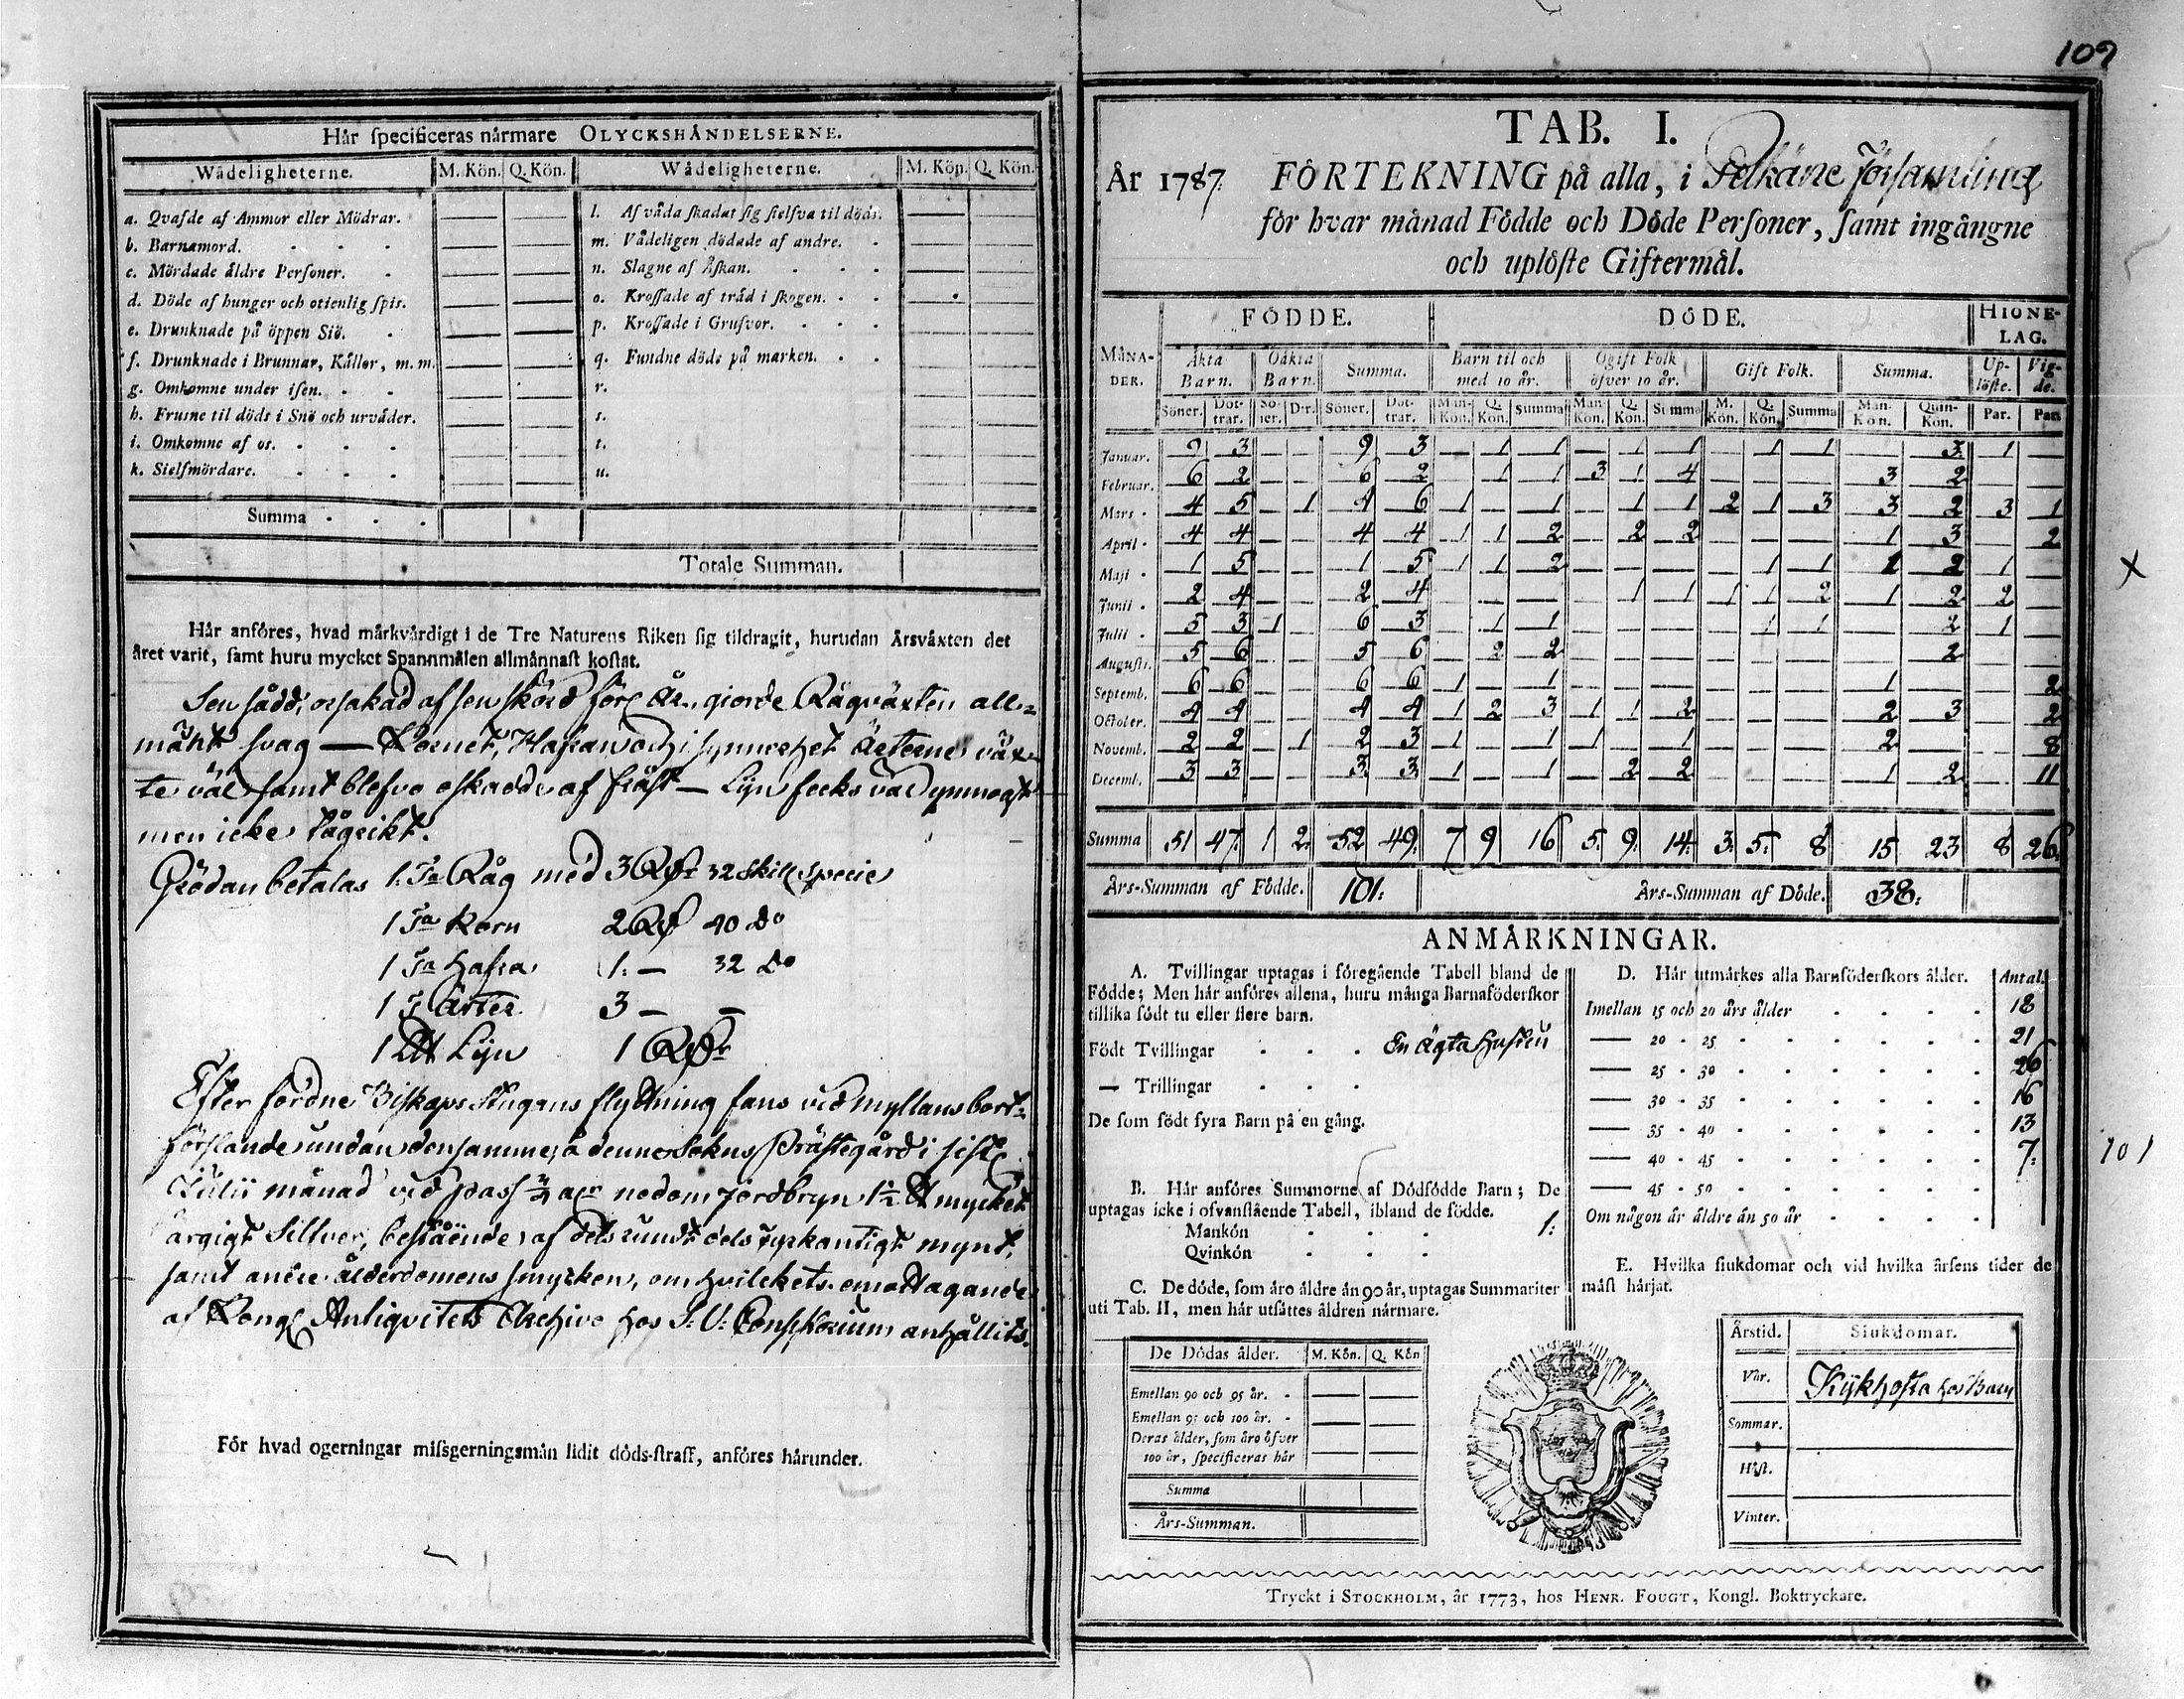 109
Hår specificeras nårmare OLYCKSHÅNDELSERNE.
Wådeligheterne. M. Kön. Q. Kön. Wådeligheterne. M. Kön. Q. Kön.
a. Qvafde af Ammor eller Mödrar. — — l. Af våda skadat sig sielfva til döds. — —
b. Barnamord. — — m. Vådeligen dödade af andre. — —
c. Mördade åldre Personer. — — n. Slagne af Åskan. — —
d. Döde af hunger och otienlig spis. — — o. Krossade af tråd i skogen. — —
e. Drunknade på öppen Siö. — — p. Krossade i Grufvor. — —
f. Drunknade i Brunnar, Kållor, m. m. — — q. Fundne döde på marken. — —
g. Omkomne under isen. — — r. — —
h. Frusne til döds i Snö och urvåder. — — s. — —
i. Omkomne af os. — — t. — —
k. Sielfmördare. — — u. — —
Summa
Totale Summan.
Hår anföres, hvad mårkvårdigt i de Tre Naturens Riken sig tildragit, hurudan Årsvåxten det
året varit, samt huru mycket Spannmålen allmånnast kostat.
Sen sådd, orsakad af sen skörd förl. År, giorde Rågväxten all-
mänt svag — Kornet, Hafran och i synnerhet Ärterne väx-
te väl samt blefvo oskadde af fråst — Lijn feeks väl ymnogt
men icke tågrikt.
Grödan betalas 1 Ta Råg med 3 Rdr 32 skill specie
1 Ta Korn 2 Rd 40 Do
1 Ta Hafra 1. — 32 Do
1 T Ärter 3 — —
1 L℔ Lijn 1 Rdr
Efter fördne Biskops Stugans flyttning fans vid myllans bort-
förslande undan densamme, å denne Sokns Prästegård i sistl.
Julii månad vid pass aln nedom jordbryn 1½ ℔ mycket
ärgigt Sillver, bestående af dels rundt dels fyrkantigt mynt,
samt andre ålderdomens smycken, om hvilckets emottagande
af Kongl. Antiqvitets Archivo hos S. V. Consistorium anhållits.
För hvad ogerningar missgerningsmån lidit döds-straff, anföres hårunder.
TAB. I.
År 1787. FÖRTEKNING på alla, i Pelkäne Församling
för hvar månad Födde och Döde Personer, samt ingångne
och uplöste Giftermål.
FÖDDE. DÖDE. HIONE-
LAG.
MÅNA-
DER. Åkta
Barn. Oåkta
Barn. Summa. Barn til och
med 10 år. Ogift Folk
öfver 10 år. Gift Folk. Summa. Up-
löste. Vig-
de.
Söner. Döt-
trar. Sö-
ner. D:r. Söner. Döt-
trar. Man-
Kön. Q.
Kön. Summa Man-
Kön. Q.
Kön. Summa M.
Kön. Q.
Kön. Summa Man-
Kön. Quin-
Kön. Par. Par.
Januar. 9 3 — — 9 3 — 1 1 — 1 1 — 1 1 — 3 1 —
Februar. 6 2 — — 6 2 — 1 1 3 1 4 — — — 3 2 — —
Mars 4 5 — 1 4 6 1 — 1 — 1 1 2 1 3 3 2 3 1
April 4 4 — — 4 4 1 1 2 — 2 2 — — — 1 3 — 2
Maji 1 5 — — 1 5 1 1 2 — — — — 1 1 1 2 1 —
Junii 2 4 — — 2 4 — — — — 1 1 1 1 2 1 2 2 —
Julii 5 3 1 — 6 3 — 1 1 — — — — 1 1 — 2 1 —
Augusti. 5 6 — — 5 6 — 2 2 — — — — — — — 2 — —
Septemb. 6 6 — — 6 6 1 — 1 — — — — — — 1 — — 2
Octoler. 4 4 — — 4 4 1 2 3 1 1 2 — — — 2 3 — 2
Novemb. 2 2 — 1 2 3 1 — 1 1 — 1 — — — 2 — — 8
Decemb. 3 3 — — 3 3 1 — 1 — 2 2 — — — 1 2 — 11
Summa 51 47. 1 2. 52 49. 7 9 16 5. 9. 14. 3. 5. 8 15 23 8 26.
Års-Summan af Födde. 101. Års-Summan af Döde. 38.
×
ANMÅRKNINGAR.
A. Tvillingar uptagas i föregående Tabell bland de
Födde; Men hår anföres allena, huru många Barnaföderskor
tillika födt tu eller flere barn.
Födt Tvillingar En ägta hustru
— Trillingar
De som födt fyra Barn på en gång.
B. Hår anföres Summorne af Dödfödde Barn; De
uptagas icke i ofvanstående Tabell, ibland de födde.
Mankön 1.
Qvinkön
C. De döde, som åro åldre ån 90 år, uptagas Summariter
uti Tab. II, men hår utsåttes åldren nårmare.
De Dödas ålder. M. Kön. Q. Kön
Emellan 90 och 95 år. — —
Emellan 95 och 100 år. — —
Deras ålder, som åro öfver
100 år, specificeras hår — —
Summa
Års-Summan.
D. Hår utmårkes alla Barnföderskors ålder. Antal.
Imellan 15 och 20 års ålder 18
— 20 - 25 21
— 25 - 30 26
— 30 - 35 16
— 35 - 40 13
— 40 - 45 7.
101
— 45 - 50
Om någon år åldre ån 50 år
E. Hvilka siukdomar och vid hvilka årsens tider de
måst hårjat.
Årstid. Siukdomar.
Vår. Kijkhosta hos Barn
Sommar.
Höst.
Vinter.
Tryckt i STOCKHOLM, år 1773, hos HENR. FOUGT, Kongl. Boktryckare.